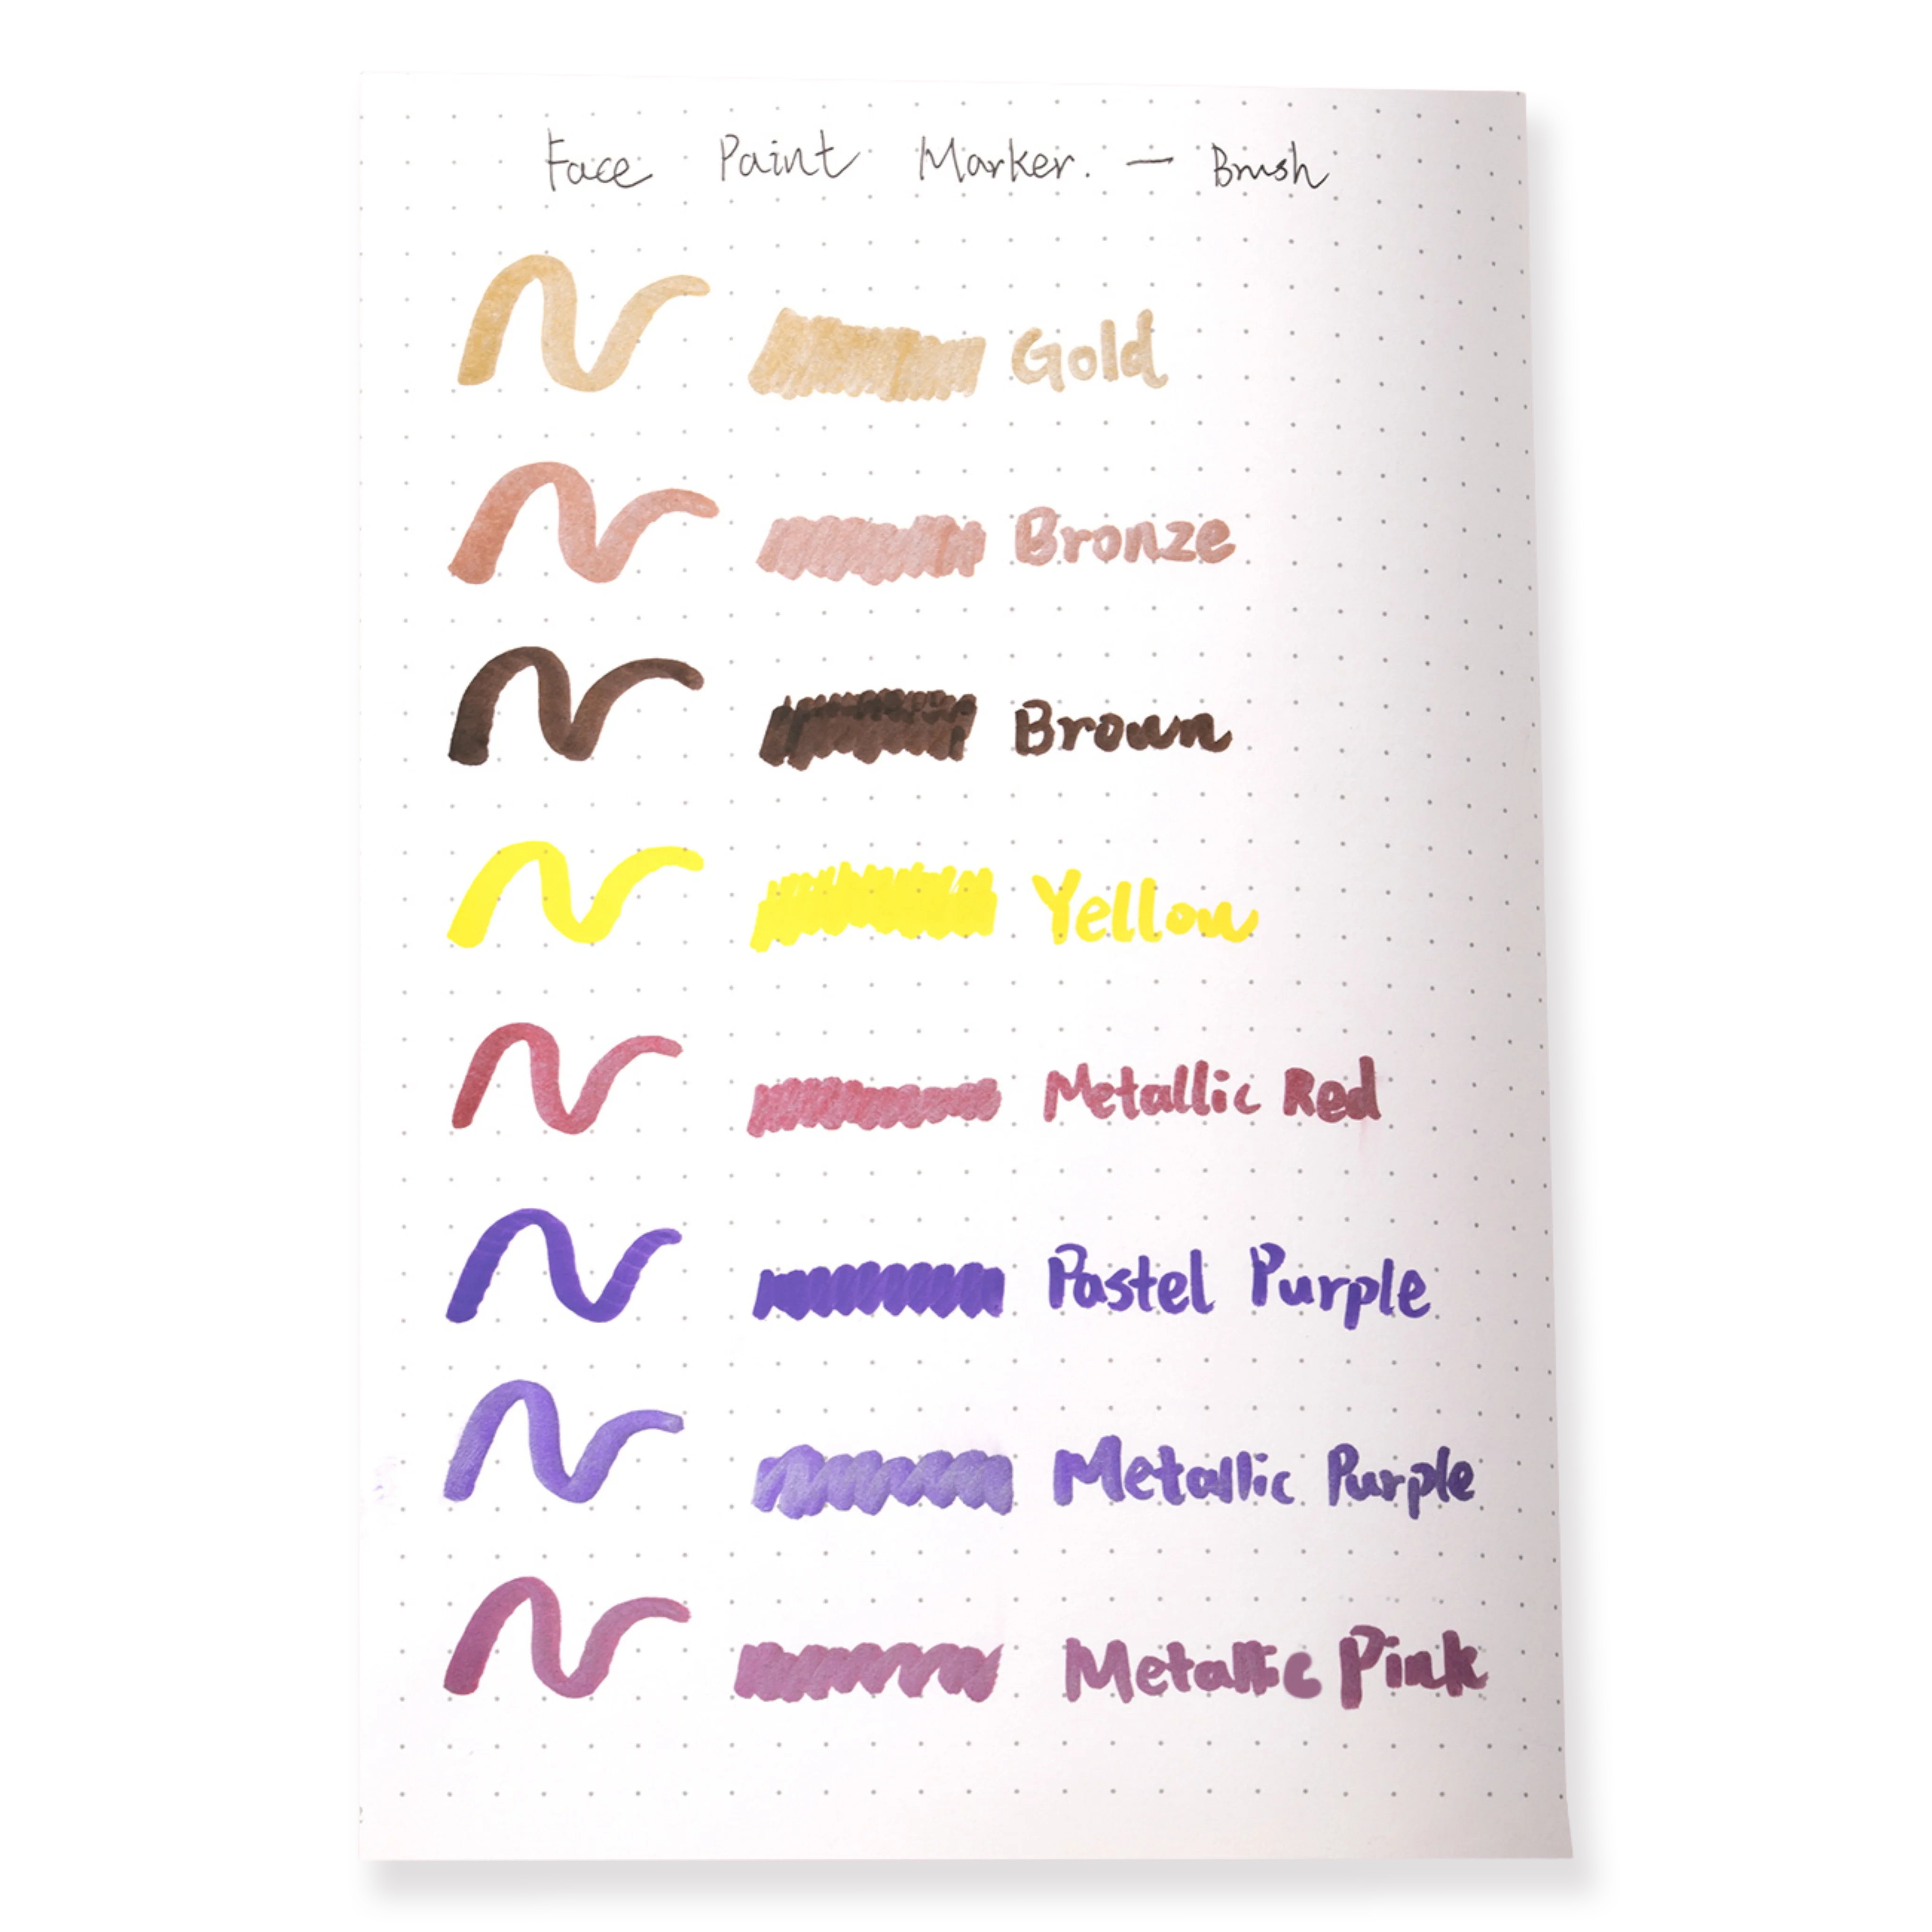 Face Paint Marker. — Brush
Gold
Bronze
Brown
Yellow
Metallic Red
Pastel Purple
Metallic Purple
Metallic Pink